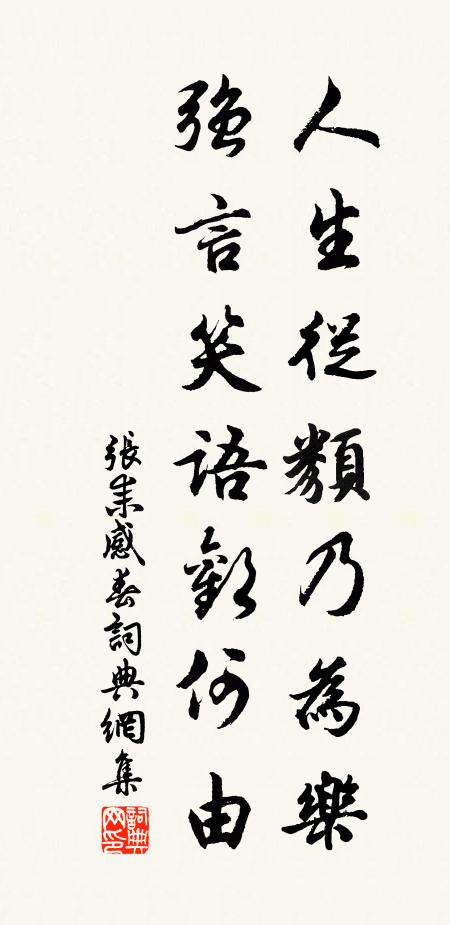 人生從類乃為樂
強言笑語歡何由
張耒感春詞典網集
詞典网印